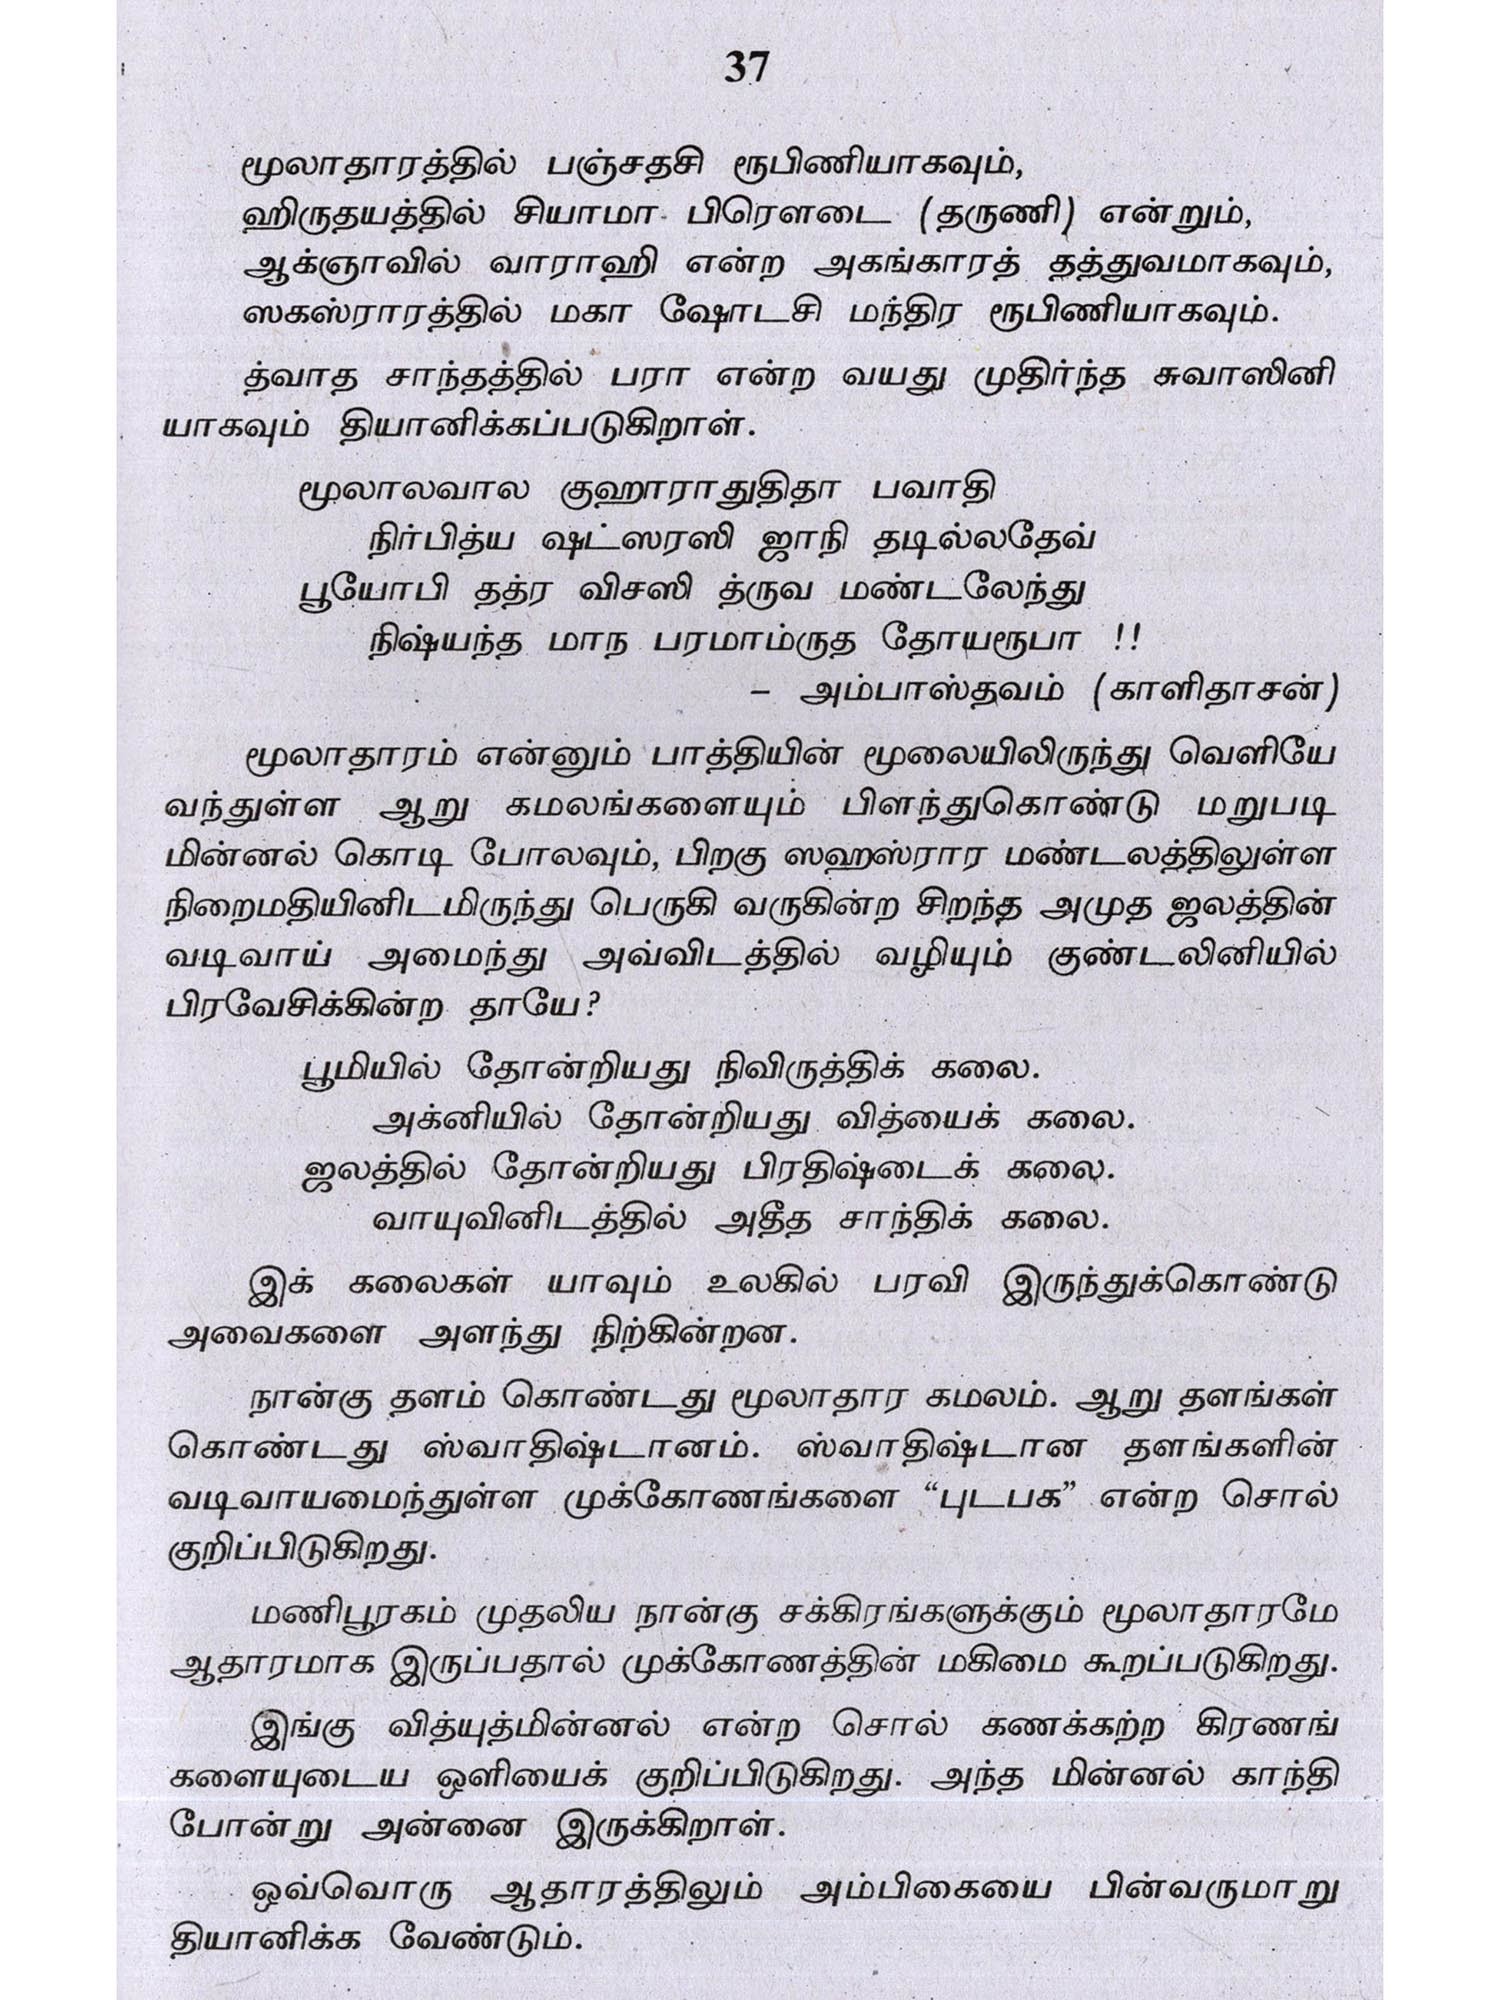 37
மூலாதாரத்தில் பஞ்சதசி ரூபிணியாகவும்,
ஹிருதயத்தில் சியாமா பிரௌடை (தருணி) என்றும்,
ஆக்ஞாவில் வாராஹி என்ற அகங்காரத் தத்துவமாகவும்,
ஸகஸ்ராரத்தில் மகா ஷோடசி மந்திர ரூபிணியாகவும்.
த்வாத சாந்தத்தில் பரா என்ற வயது முதிர்ந்த சுவாஸினி
யாகவும் தியானிக்கப்படுகிறாள்.
மூலாலவால குஹாராதுதிதா பவாதி
நிர்பித்ய ஷட்ஸரஸி ஜாநி தடில்லதேவ்
பூயோபி தத்ர விசஸி த்ருவ மண்டலேந்து
நிஷ்யந்த மாந பரமாம்ருத தோயரூபா !!
– அம்பாஸ்தவம் (காளிதாசன்)
மூலாதாரம் என்னும் பாத்தியின் மூலையிலிருந்து வெளியே
வந்துள்ள ஆறு கமலங்களையும் பிளந்துகொண்டு மறுபடி
மின்னல் கொடி போலவும், பிறகு ஸஹஸ்ரார மண்டலத்திலுள்ள
நிறைமதியினிடமிருந்து பெருகி வருகின்ற சிறந்த அமுத ஜலத்தின்
வடிவாய் அமைந்து அவ்விடத்தில் வழியும் குண்டலினியில்
பிரவேசிக்கின்ற தாயே?
பூமியில் தோன்றியது நிவிருத்திக் கலை.
அக்னியில் தோன்றியது வித்யைக் கலை.
ஜலத்தில் தோன்றியது பிரதிஷ்டைக் கலை.
வாயுவினிடத்தில் அதீத சாந்திக் கலை.
இக் கலைகள் யாவும் உலகில் பரவி இருந்துக்கொண்டு
அவைகளை அளந்து நிற்கின்றன.
நான்கு தளம் கொண்டது மூலாதார கமலம். ஆறு தளங்கள்
கொண்டது ஸ்வாதிஷ்டானம். ஸ்வாதிஷ்டான தளங்களின்
வடிவாயமைந்துள்ள முக்கோணங்களை “புடபக” என்ற சொல்
குறிப்பிடுகிறது.
மணிபூரகம் முதலிய நான்கு சக்கிரங்களுக்கும் மூலாதாரமே
ஆதாரமாக இருப்பதால் முக்கோணத்தின் மகிமை கூறப்படுகிறது.
இங்கு வித்யுத்மின்னல் என்ற சொல் கணக்கற்ற கிரணங்
களையுடைய ஒளியைக் குறிப்பிடுகிறது. அந்த மின்னல் காந்தி
போன்று அன்னை இருக்கிறாள்.
ஒவ்வொரு ஆதாரத்திலும் அம்பிகையை பின்வருமாறு
தியானிக்க வேண்டும்.